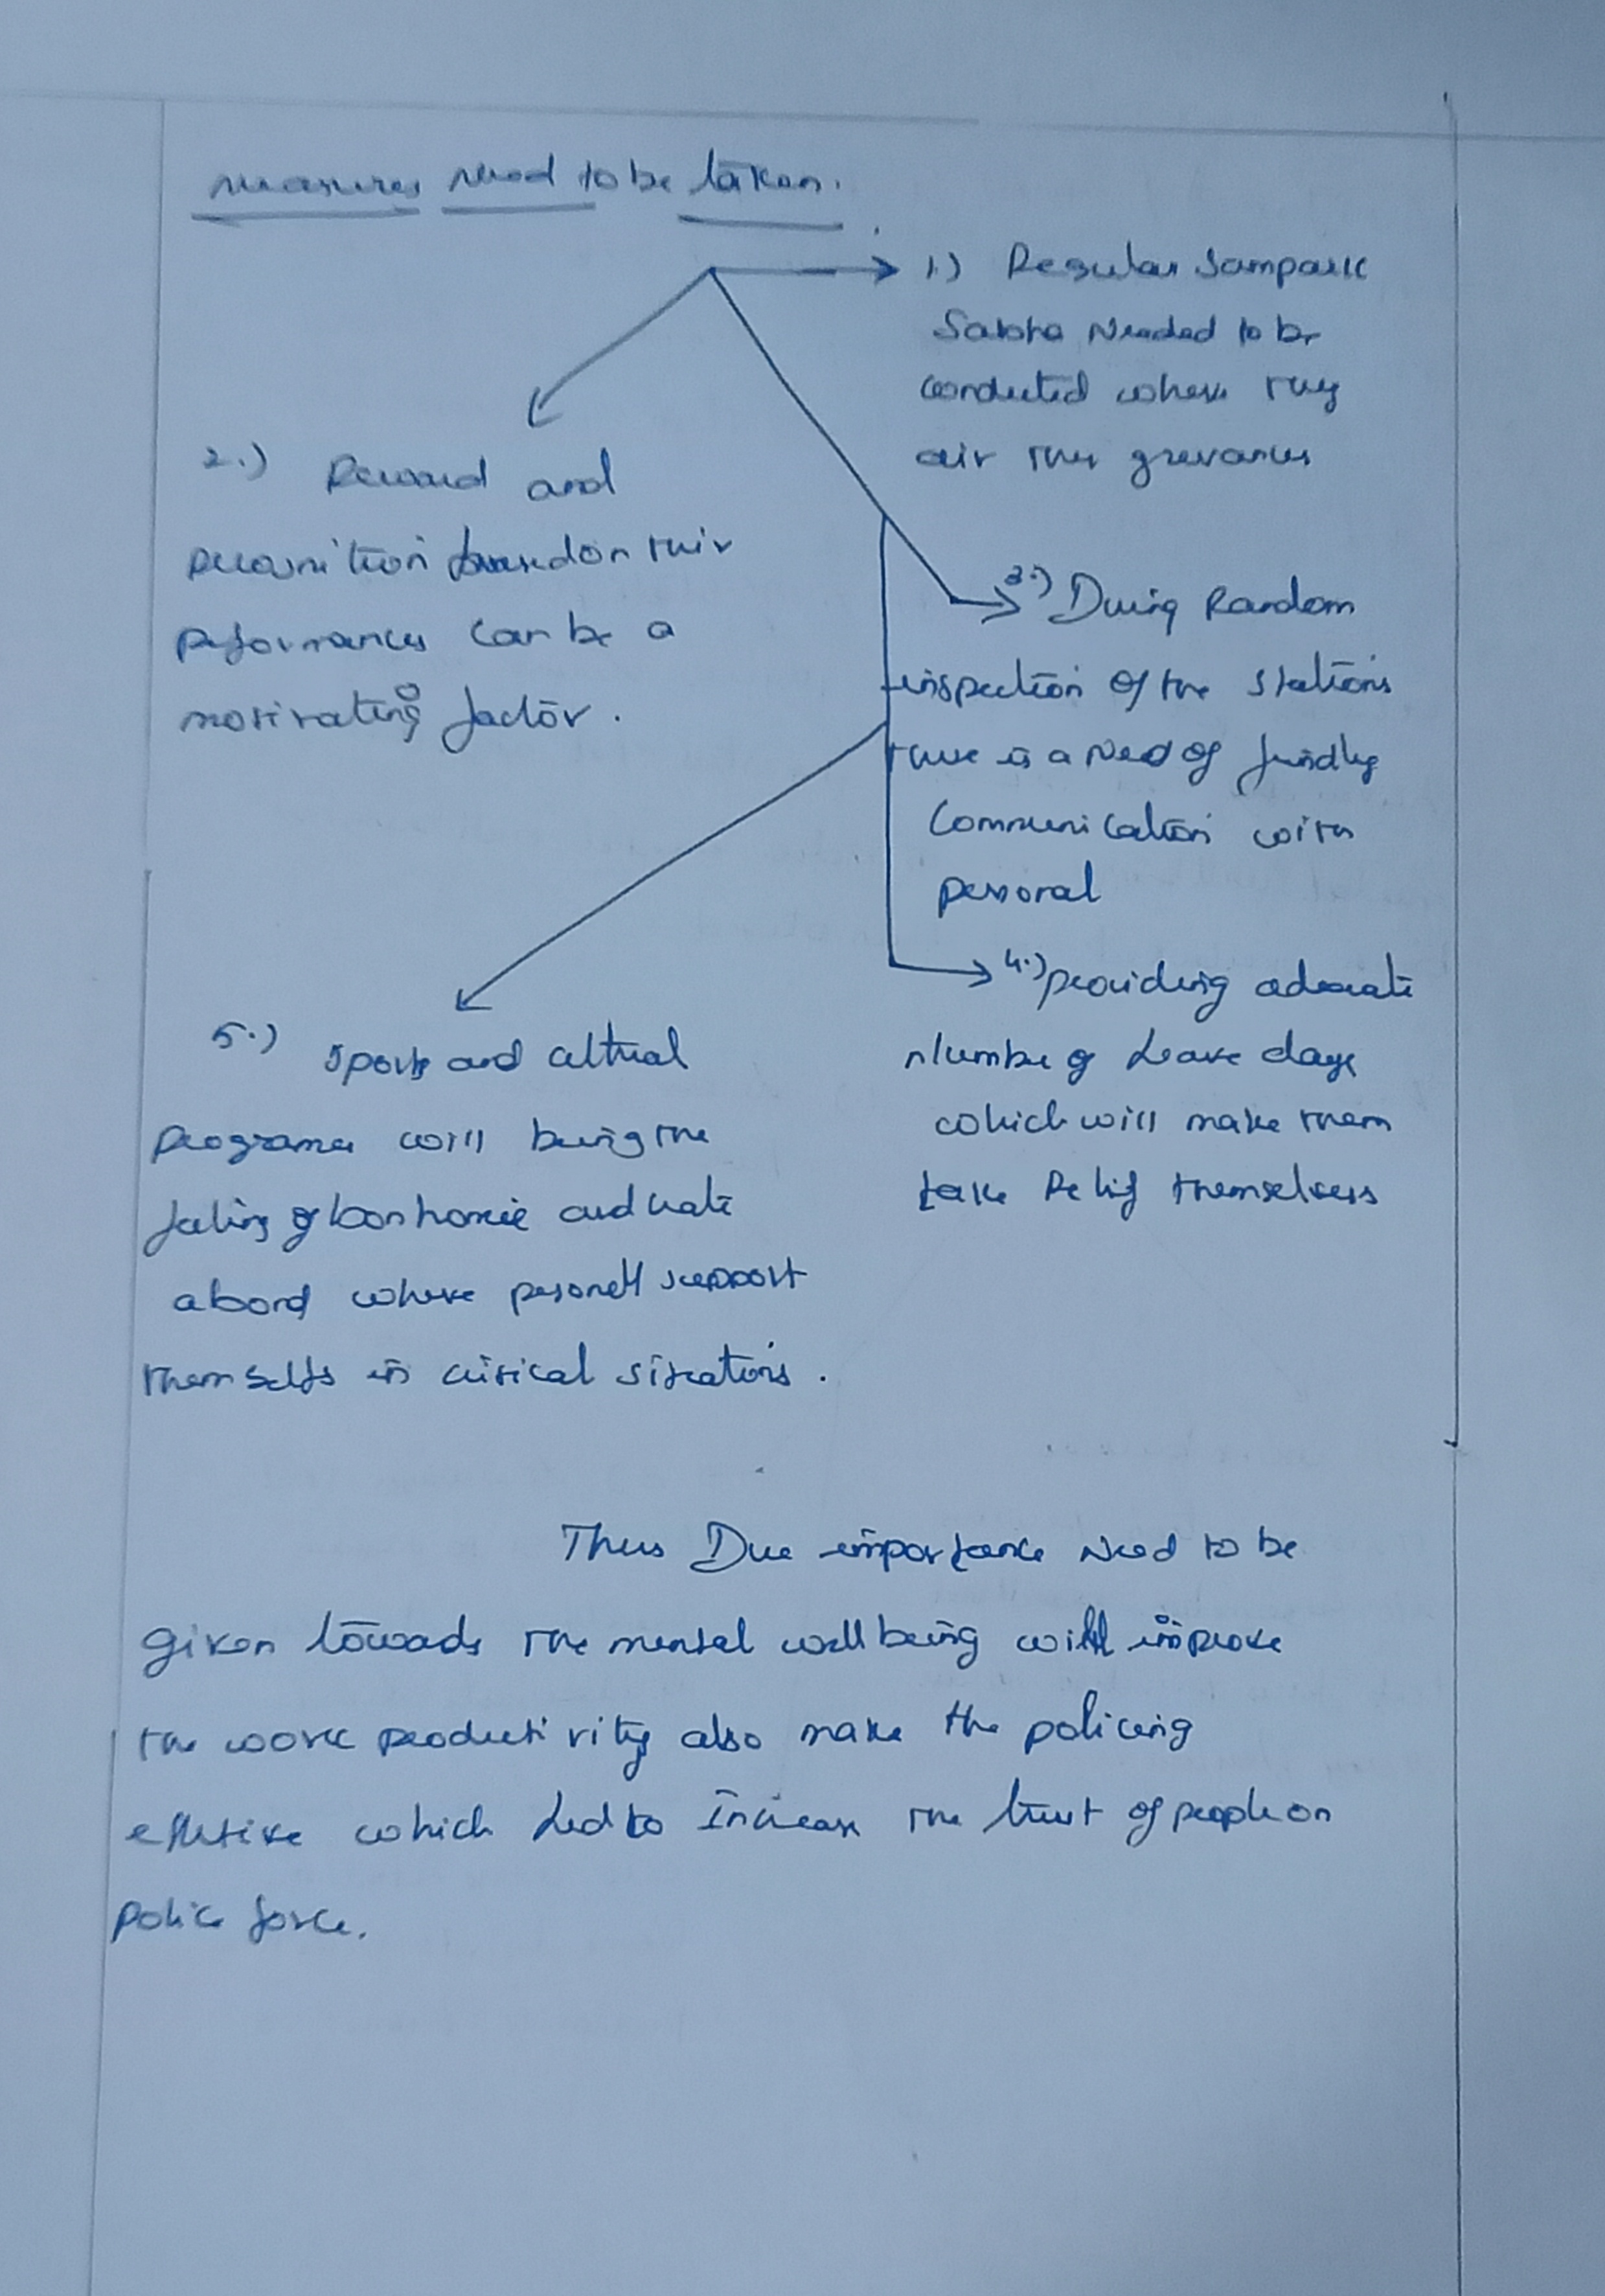 measures need to be taken.
1.) Regular Sampark
Sabha Needed to be
conducted where they
air their grievances
2.) Reward and
recognition based on their
performances can be a
motivating factor.
3.) During Random
inspection of the stations
there is a Need of friendly
Communication with
personal
4.) providing adequate
Number of Leave days
which will make them
take Relief themselves
5.) sports and cultural
programes will bring the
feeling of bonhomie and create
a bond where personell support
themselfs in critical situations.
Thus Due importance Need to be
given towards the mental wellbeing will improve
the work productivity also make the policing
effective which led to Increase the trust of people on
police force.